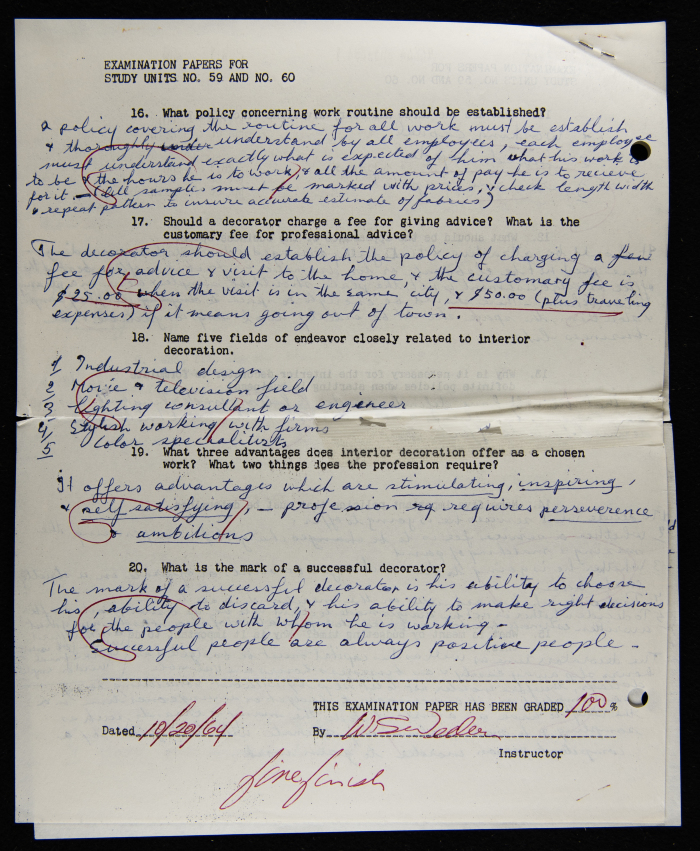 EXAMINATION PAPERS FOR
STUDY UNITS NO. 59 AND NO. 60
16. What policy concerning work routine should be established?
a policy covering the routine for all work must be establish
& thoroughly under understand by all employees, each employee
must understand exactly what is expected of him what his work is
to be & the hours he is to work, & all the amount of pay he is to recieve
for it – (all samples must be marked with prices, & check length width
& repeat pattern to insure accurate estimate of fabrics)
17. Should a decorator charge a fee for giving advice? What is the
customary fee for professional advice?
The decorator should establish the policy of charging a few
fee for advice & visit to the home, & the customary fee is
$25.00 when the visit is in the same city, & $50.00 (plus traveling
expenses) if it means going out of town.
18. Name five fields of endeavor closely related to interior
decoration.
1 Industrial design
2 Movie & television field
3 Lighting consultant or engineer
4 Stylish working with firms
5 Color specialitists
19. What three advantages does interior decoration offer as a chosen
work? What two things does the profession require?
It offers advantages which are stimulating, inspiring,
& self satisfying, – profession rq requires perseverence
& ambitions
20. What is the mark of a successful decorator?
The mark of a successful decorator is his ability to choose
his, ability to discard, & his ability to make right decisions
for the people with whom he is working –
Successful people are always positive people –
THIS EXAMINATION PAPER HAS BEEN GRADED 100 %
Dated 10/20/64 By
Instructor
fine finish